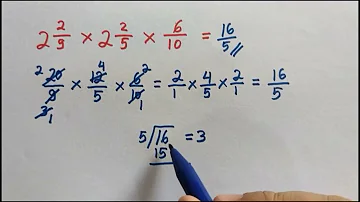 2 2/9 × 2 2/5 × 6/10 = 16/5 //
2 20/9 3 1 × 12 4/5 × 6 2/10 1 = 2/1 × 4/5 × 2/1 = 16/5
5 ) 16 = 3
15